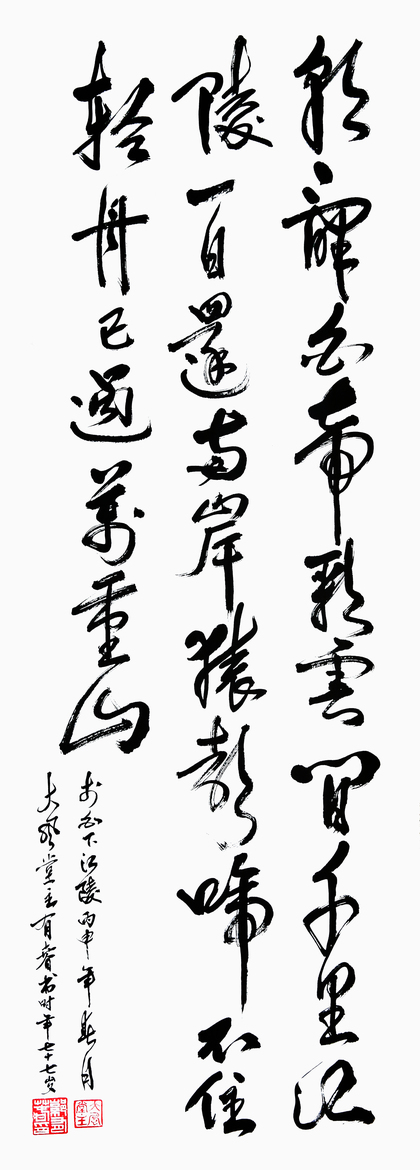 朝辭白帝彩雲間千里江
陵一日還兩岸猿聲啼不住
輕舟已過萬重山
李白下江陵丙申年春月
大風堂主有书时年七十七岁